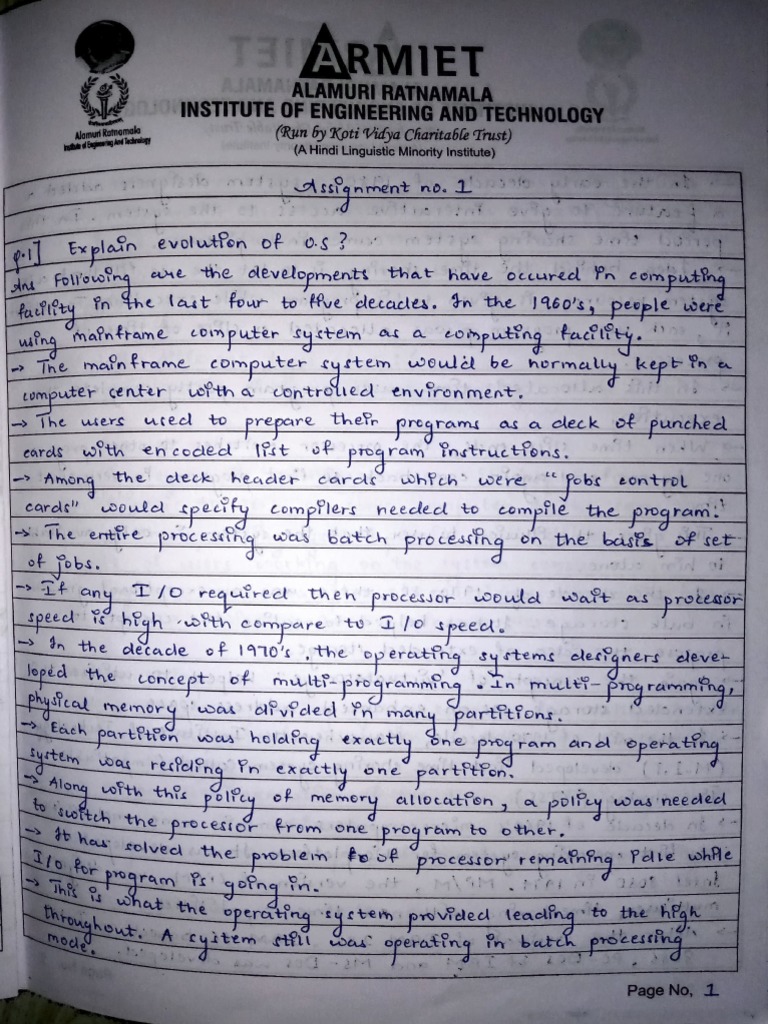 ARMIET
ALAMURI RATNAMALA
INSTITUTE OF ENGINEERING AND TECHNOLOGY
(Run by Koti Vidya Charitable Trust)
(A Hindi Linguistic Minority Institute)
Alamuri Ratnamala
Institute of Engineering And Technology
Assignment no. 1
Q.1] Explain evolution of O.S ?
Ans Following are the developments that have occured in computing
facility in the last four to five decades. In the 1960's, people were
using mainframe computer system as a computing facility.
→ The mainframe computer system would be normally kept in a
computer center with a controlled environment.
→ The users used to prepare their programs as a deck of punched
cards with encoded list of program instructions.
→ Among the deck header cards which were "jobs control
cards" would specify compilers needed to compile the program.
→ The entire processing was batch processing on the basis of set
of jobs.
→ If any I/O required then processor would wait as processor
speed is high with compare to I/O speed.
→ In the decade of 1970's, the operating systems designers deve-
loped the concept of multi-programming. In multi-programming,
physical memory was divided in many partitions.
→ Each partition was holding exactly one program and operating
system was residing in exactly one partition.
→ Along with this policy of memory allocation, a policy was needed
to switch the processor from one program to other.
→ It has solved the problem of processor remaining idle while
I/O for program is going in.
→ This is what the operating system provided leading to the high
throughout. A system still was operating in batch processing
mode.
Page No, 1